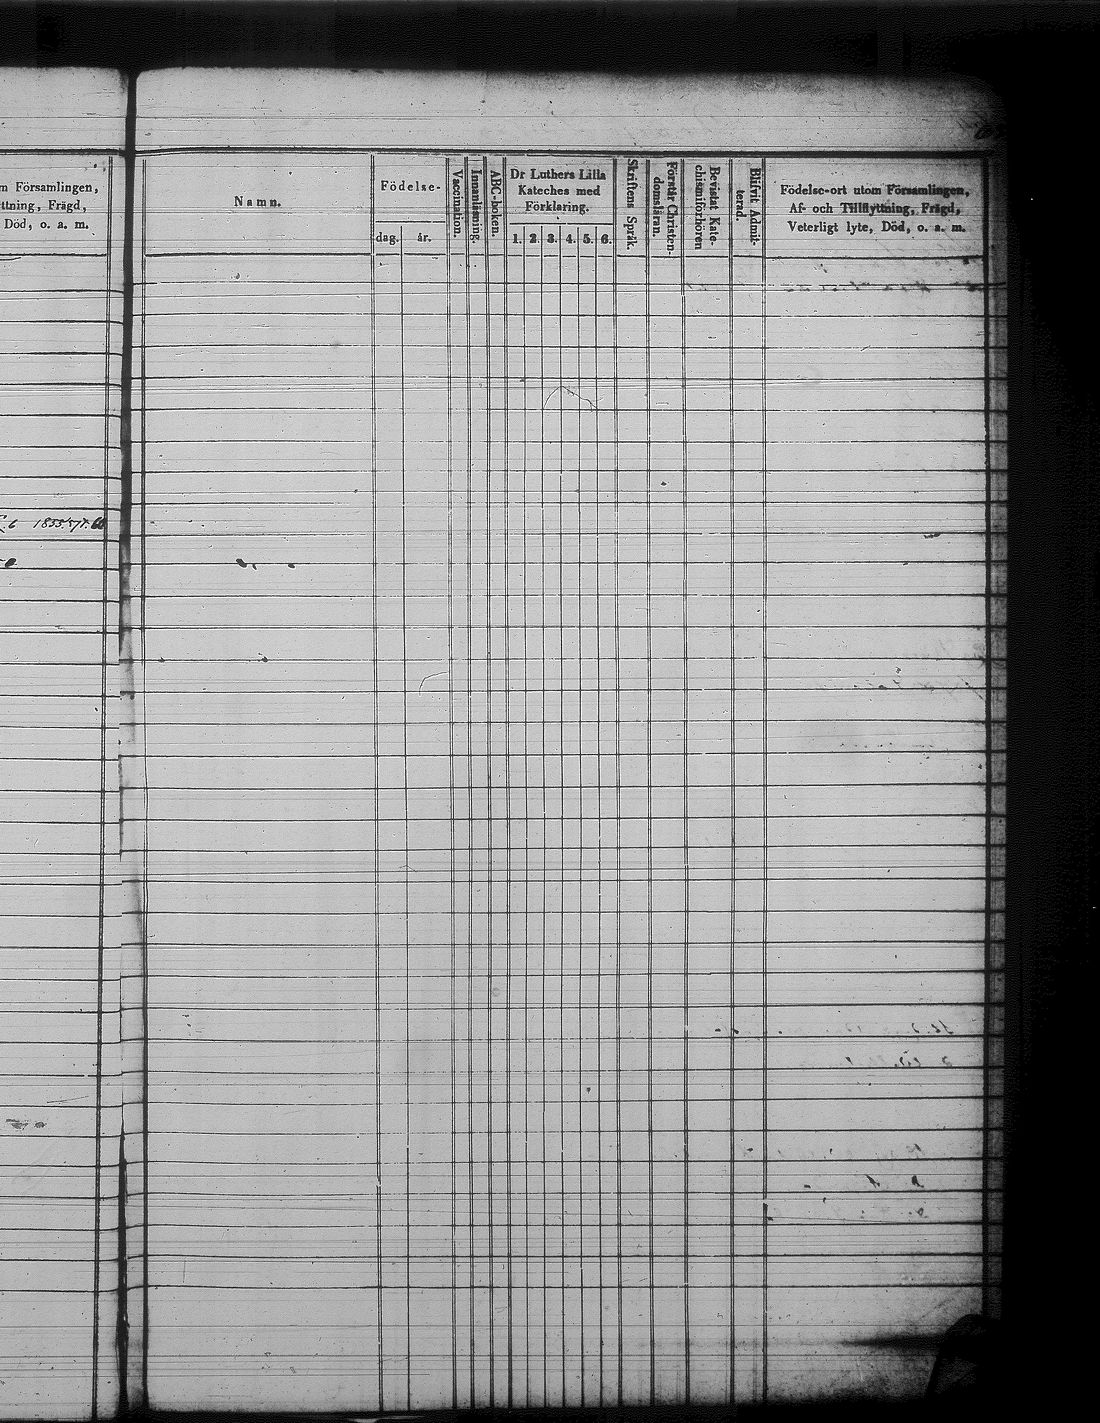 m Församlingen,
ttning, Frägd,
Död, o. a. m.
1855
Namn.
Födelse-
dag. år.
Vaccination.
Innanläsning.
ABC-boken.
Dr Luthers Lilla
Kateches med
Förklaring.
1. 2. 3. 4. 5. 6.
Skriftens Språk.
Förstår Christen-
domsläran.
Bevistat Kate-
chismiförhören
Blifvit Admit-
terad.
Födelse-ort utom Församlingen,
Af- och Tillflyttning, Frägd,
Veterligt lyte, Död, o. a. m.